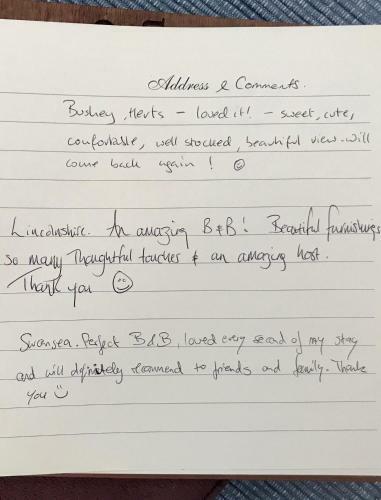 Address & Comments.
Bushey, Herts - loved it! - sweet, cute,
comfortable, well stocked, beautiful view - will
come back again! ☺
Lincolnshire. An amazing B&B! Beautiful furnishings
so many thoughtful touches & an amazing host.
Thank you ☺
Swansea. Perfect B&B, loved every second of my stay
and will definitely recommend to friends and family. Thank
you ☺